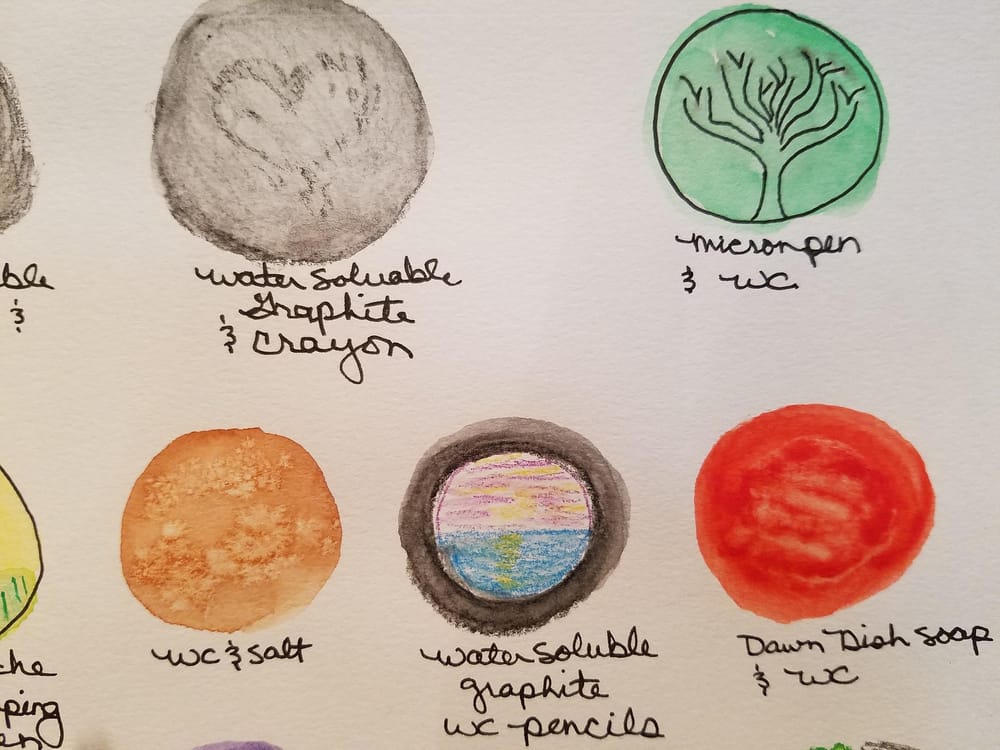 ble
&
water soluable
Graphite
& Crayon
micron pen
& wc
che
ping
en
wc & salt
water soluble
graphite
wc pencils
Dawn Dish soap
& wc